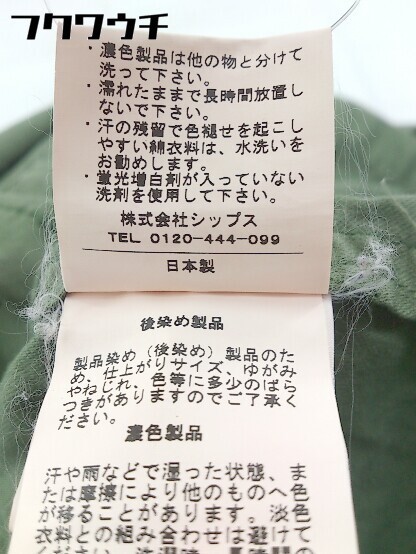 フクワウチ
・濃色製品は他の物と分けて
洗って下さい。
・濡れたままで長時間放置し
ないで下さい。
・汗の残留で色褪せを起こし
やすい綿衣料は、水洗いを
お勧めします。
・蛍光増白剤が入っていない
洗剤を使用して下さい。
株式会社シップス
TEL 0120-444-099
日本製
後染め製品
製品染め(後染め)製品のた
め、仕上がりサイズ、ゆがみ
やねじれ、色等に多少のばら
つきがありますのでご了承く
ださい。
濃色製品
汗や雨などで湿った状態、ま
たは摩擦により他のものへ色
が移ることがあります。淡色
衣料との組み合わせは避けて
ください。